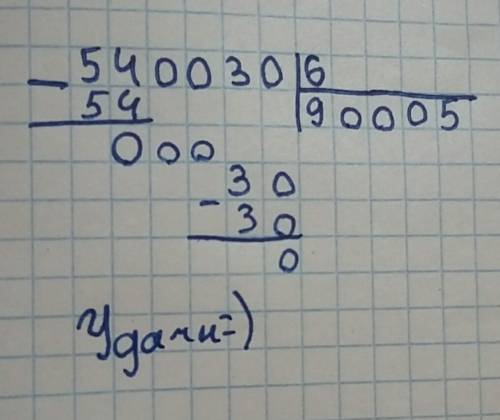 - 540030 | 6
54 | 90005
000
- 30
30
0
Удачи=)